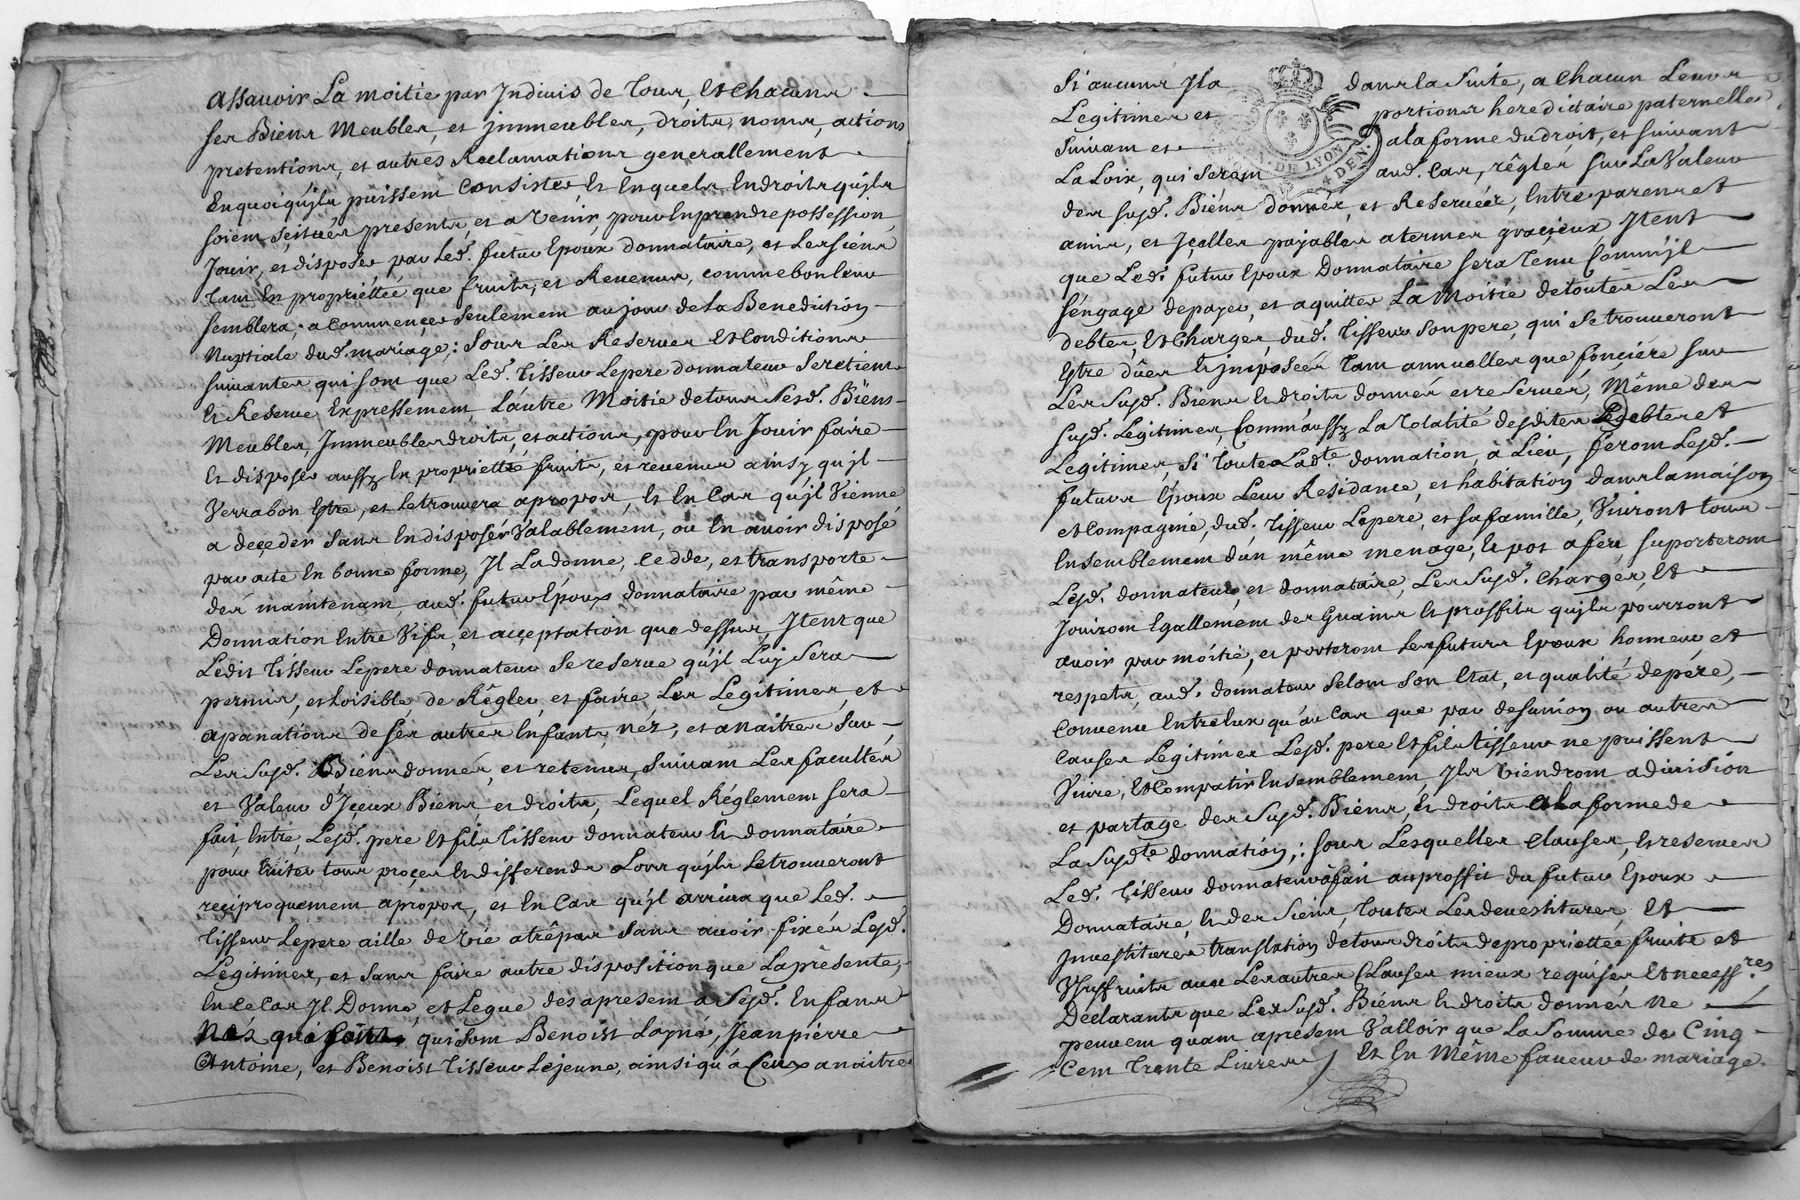 assauoir La moitie par Indiuis de Tous, et chacuns
ses Biens Meubles, et jmmeubles, droits, noms, actions
pretentions, et autres Reclamations generallement
Enquoi qujls puissent Consister et Enquels Endroits qujls
soient scitués presents et avenir, pour En prendre possession
Jouir, et disposer par Led. futur Epoux donnataire, et Les siens
tant En propriettée que fruits, et Reuenus, comme bon leur
semblera, a commencer seulement au jour de La Benediction
Nuptiale dud. mariage; sous Les Reserues Et Conditions
suiuantes qui sont que Led. Tisseur Lepere donnateur se retient
Et Reserue Expressement Lautre Moitie de tous sesd. Biens
Meubles, Immeubles droits, et actions, pour En Jouir faire
Et disposer aussy En proprietté fruits, et reuenus ainsy qujl
Verra bon Estre, et letrouuera apropos, Et En Cas qu'jl Vienne
a deceder sans En disposer Valablement, ou En auoir disposé
par acte En bonne forme, Il La donne, cedde, et transporte
dés maintenant aud. futur Epoux donnataire par même
Donnation Entre Vifs, et acceptation que dessus, Item que
Ledit Tisseur Lepere donnateur se reserue qu'jl Luy sera
permis, et Loisible de Régler, et faire Les Legitimes, et
apanations de ses autres Enfants nez, et a naitre, sur
Les susd. Biens donnés, et retenus, suiuant Les facultés
et Valeur d'Iceux Biens, et droits, Lequel Réglement sera
fait Entre Lesd. pere Et fils Tisseur donnateur Et donnataire
pour Euiter tous procès Et differends Lors qujls Le trouueront
reciproquement apropos, et En Cas qujl arriua que Led.
Tisseur Lepere aille de vie a trêpas sans auoir fixés Lesd.
Legitimes, et sans faire autre disposition que La présente,
En ce Cas Il Donne, et Legue dés apresent a sesd. Enfans
qui sont Benoist Layné, Jean pierre
Antoine, et Benoist Tisseur Lejeune, ainsi qu'à Ceux a naitre
Si aucuns Il a dans la suite, a Chacun Leurs
Legitimes et portions hereditaire paternelle
suiuant et a la forme du droit, et suiuant
La Loix, qui seront aud. Cas, règlés sur La Valeur
GEN. DE LYON
4 DEN.
des susd. Biens donnés, et Reserués, Entre parens et
amis, et Icelles payables a termes gracieux Item
que Led. futur Epoux Donnataire sera Tenu Comm'jl
s'engage de payer, et aquitter La Moitie de toutes Les
debtes, Et Charges, dud. Tisseur son pere, qui se trouueront
Estre dûes Et jmposées tant annuelles que foncière sur
Les susd. Biens Et droits donnés et reserués, Même des
susd. Legitimes, Comm'aussy La Totalité desdites debtes et
Legitimes, si Toute Lad.te donnation, à Lieu, feront Lesd.
futurs Epoux Leur Residance, et habitation dans la maison
et Compagnie, dud. Tisseur Lepere, et sa famille, Viuront tous
Ensemblement d'un même menage, Et pot a feu suporteront
Lesd. donnateur, et donnataire, Les susd. charges, Et
Jouiront Egallement des Guains Et proffits qujls pourront
auoir par moitié, et porteront Les futurs Epoux honneur et
respets, aud. donnateur selont son Etat, et qualité de pére,
Conuenu Entr'eux qu'au Cas que par desunion ou autres
Causes Legitimes Lesd. pere Et fils Tisseur ne puissent
Viure, Et Compatir Ensemblement, Ils viendront a diuision
et partage des susd. Biens, Et droits a la forme de
La susd.te donnation; sous Lesquelles Clauses, Et reserues
Led. Tisseur donnateur a fait au proffit du futur Epoux
Donnataire, Et des siens, Toutes Les deuestitures, Et
Inuestitures translation de tous droits de propriettée fruits et
Vsuffruits auec Les autres Clauses mieux requises Et necess.res
Déclarants que Les susd. Biens Et droits donnés Ne
peuuent quant apresent Valloir que La somme de Cinq
Cent Trente Liures Et En Même faueur de mariage.